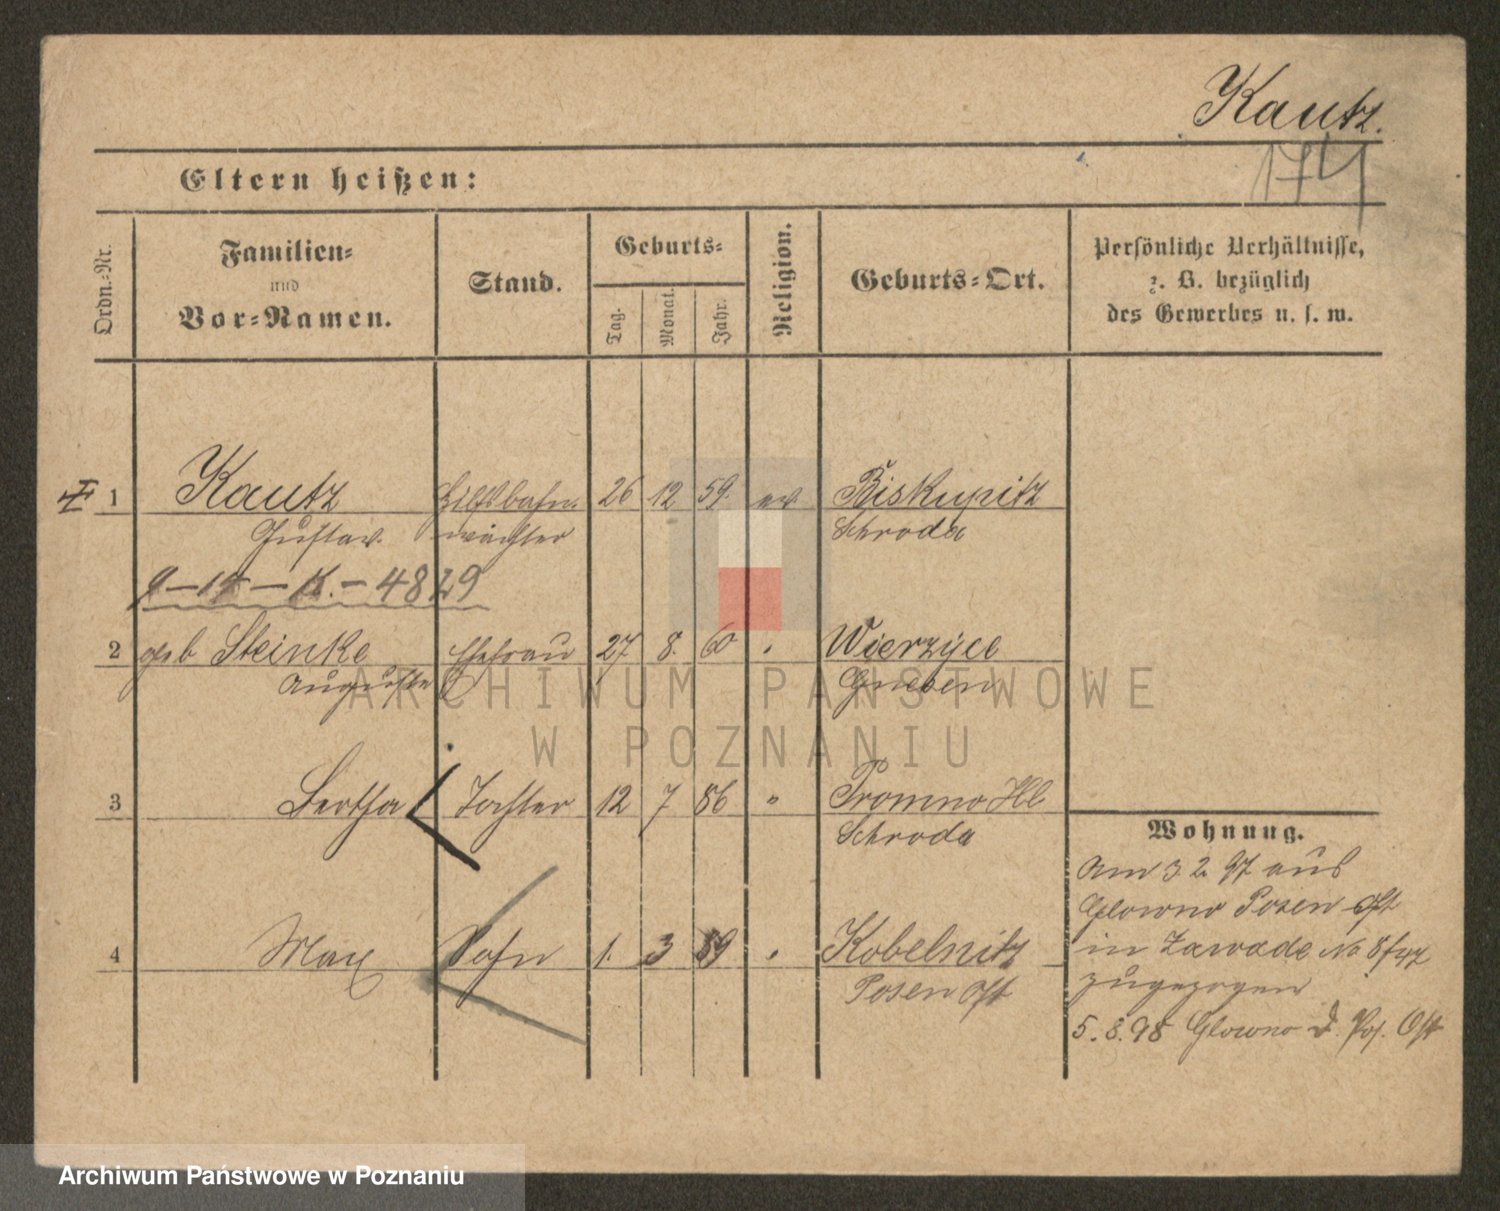 Kautz.
174
Eltern heißen:
Ordn.-Nr.
Familien-
und
Vor-Namen.
Stand.
Geburts-
Tag.
Monat.
Jahr.
Religion.
Geburts-Ort.
Persönliche Verhältnisse,
z. B. bezüglich
des Gewerbes u. s. w.
1 Kautz Hilfsbahn- 26 12 59. ev Biskupitz
Gustav. wächter Schroda
4829
2 geb Steinke Ehefrau 27 8. 60 Wierzyce
Auguste Gnesen
3 Bertha Tochter 12 7 86 " Promno Hl
Schroda
Wohnung.
am 3. 2. 97 aus
Glowno Posen Ost
in Zawade No
zugezogen
4 Max Sohn 1. 3 89 Kobelnitz
Posen Ost
5. 8. 98 Glowno Pos. Ost
ARCHIWUM PAŃSTWOWE
W POZNANIU
Archiwum Państwowe w Poznaniu